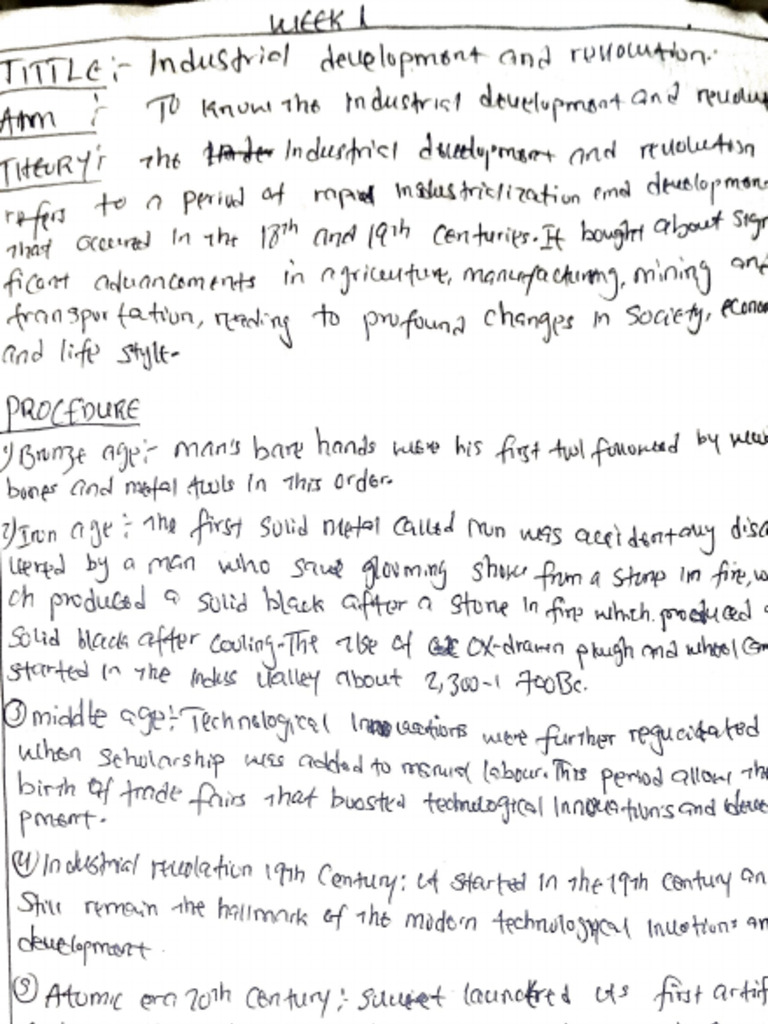 WEEK 1
TITTLE:- Industrial development and revolution.
Aim : To know the industrial development and revolu
THEORY: the Industrial development and revolution
refers to a period of rapid industrialization and developmen
that occured in the 18th and 19th centuries. It bought about sign
ficant advancements in agriculture, manufacturing, mining and
transportation, leading to profound changes in society, econom
and life style.
PROCEDURE
1) Bronze age:- man's bare hands were his first tool followed by
bones and metal tools in this order.
2) Iron age: the first solid metal called Iron was accidentally disc
vered by a man who save glooming from a stone in fire, w
ch produced a solid black after a stone in fire which produced a
solid black after cooling. The use of ox-drawn plough and wheel
started in the Indus valley about 2,300-1 700Bc.
3) middle age:- Technological Innovations were further
when scholarship was added to manual labour. This period allow the
birth of trade fairs that boosted technological Innovations and deve
pment.
4) Industrial revolation 19th Century: it started in the 19th century an
Still remain the hallmark of the modern technological an
development.
5) Atomic era 20th Century: its first artif